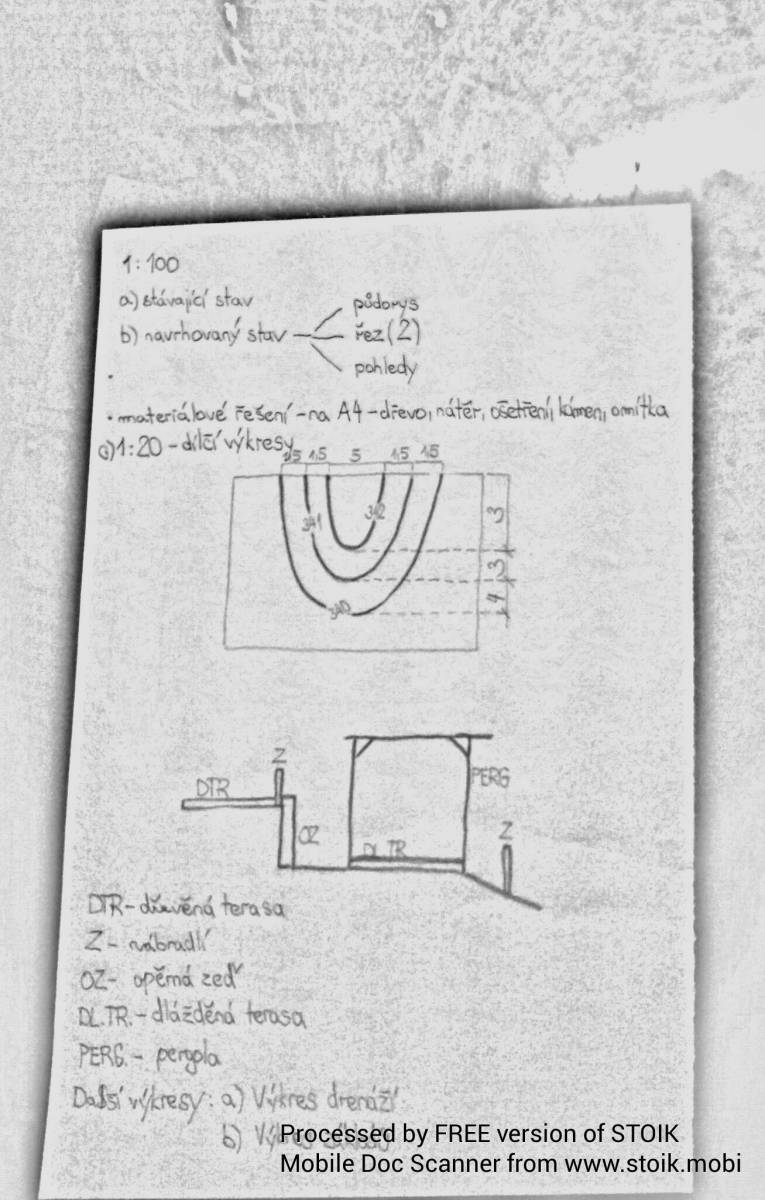 1:100
a) stávající stav
b) navrhovaný stav
půdorys
řez (2)
pohledy
• materiálové řešení - na A4 - dřevo, nátěr, ošetření, kámen, omítka
c) 1:20 - dílčí výkresy
1,5 1,5 5 1,5 1,5
341 342 3
3
340 4
Z
DTR
PERG
OZ
DL.TR
Z
DTR - dřevěná terasa
Z - zábradlí
OZ - opěrná zeď
DL.TR. - dlážděná terasa
PERG. - pergola
Další výkresy: a) Výkres drenáží
b)
Processed by FREE version of STOIK
Mobile Doc Scanner from www.stoik.mobi